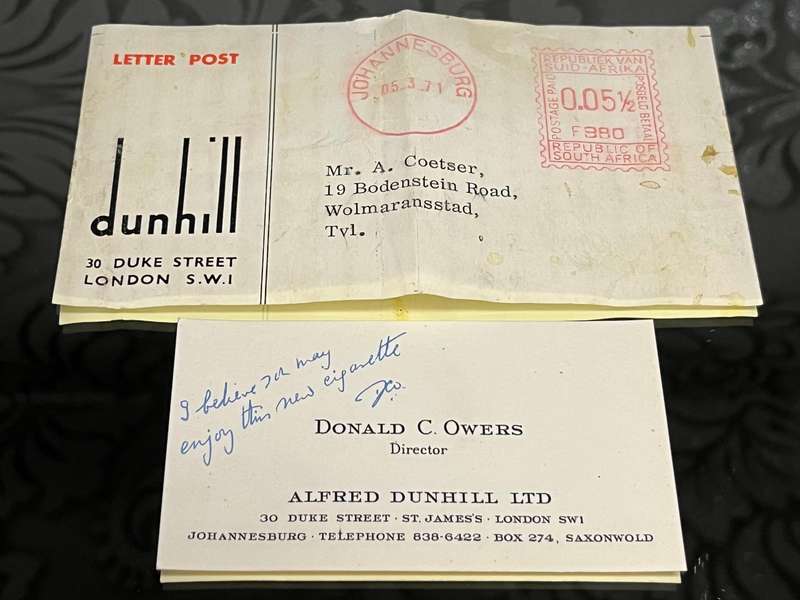 LETTER POST
dunhill
30 DUKE STREET
LONDON S.W.1
JOHANNESBURG
05.3.71
REPUBLIEK VAN
SUID-AFRIKA
POSTAGE PAID
0.05½
POSGELD BETAAL
F980
REPUBLIC OF
SOUTH AFRICA
Mr. A. Coetser,
19 Bodenstein Road,
Wolmaransstad,
Tvl.
I believe you may
enjoy this new cigarette
DCO.
DONALD C. OWERS
Director
ALFRED DUNHILL LTD
30 DUKE STREET · ST. JAMES'S · LONDON SW1
JOHANNESBURG · TELEPHONE 838-6422 · BOX 274, SAXONWOLD